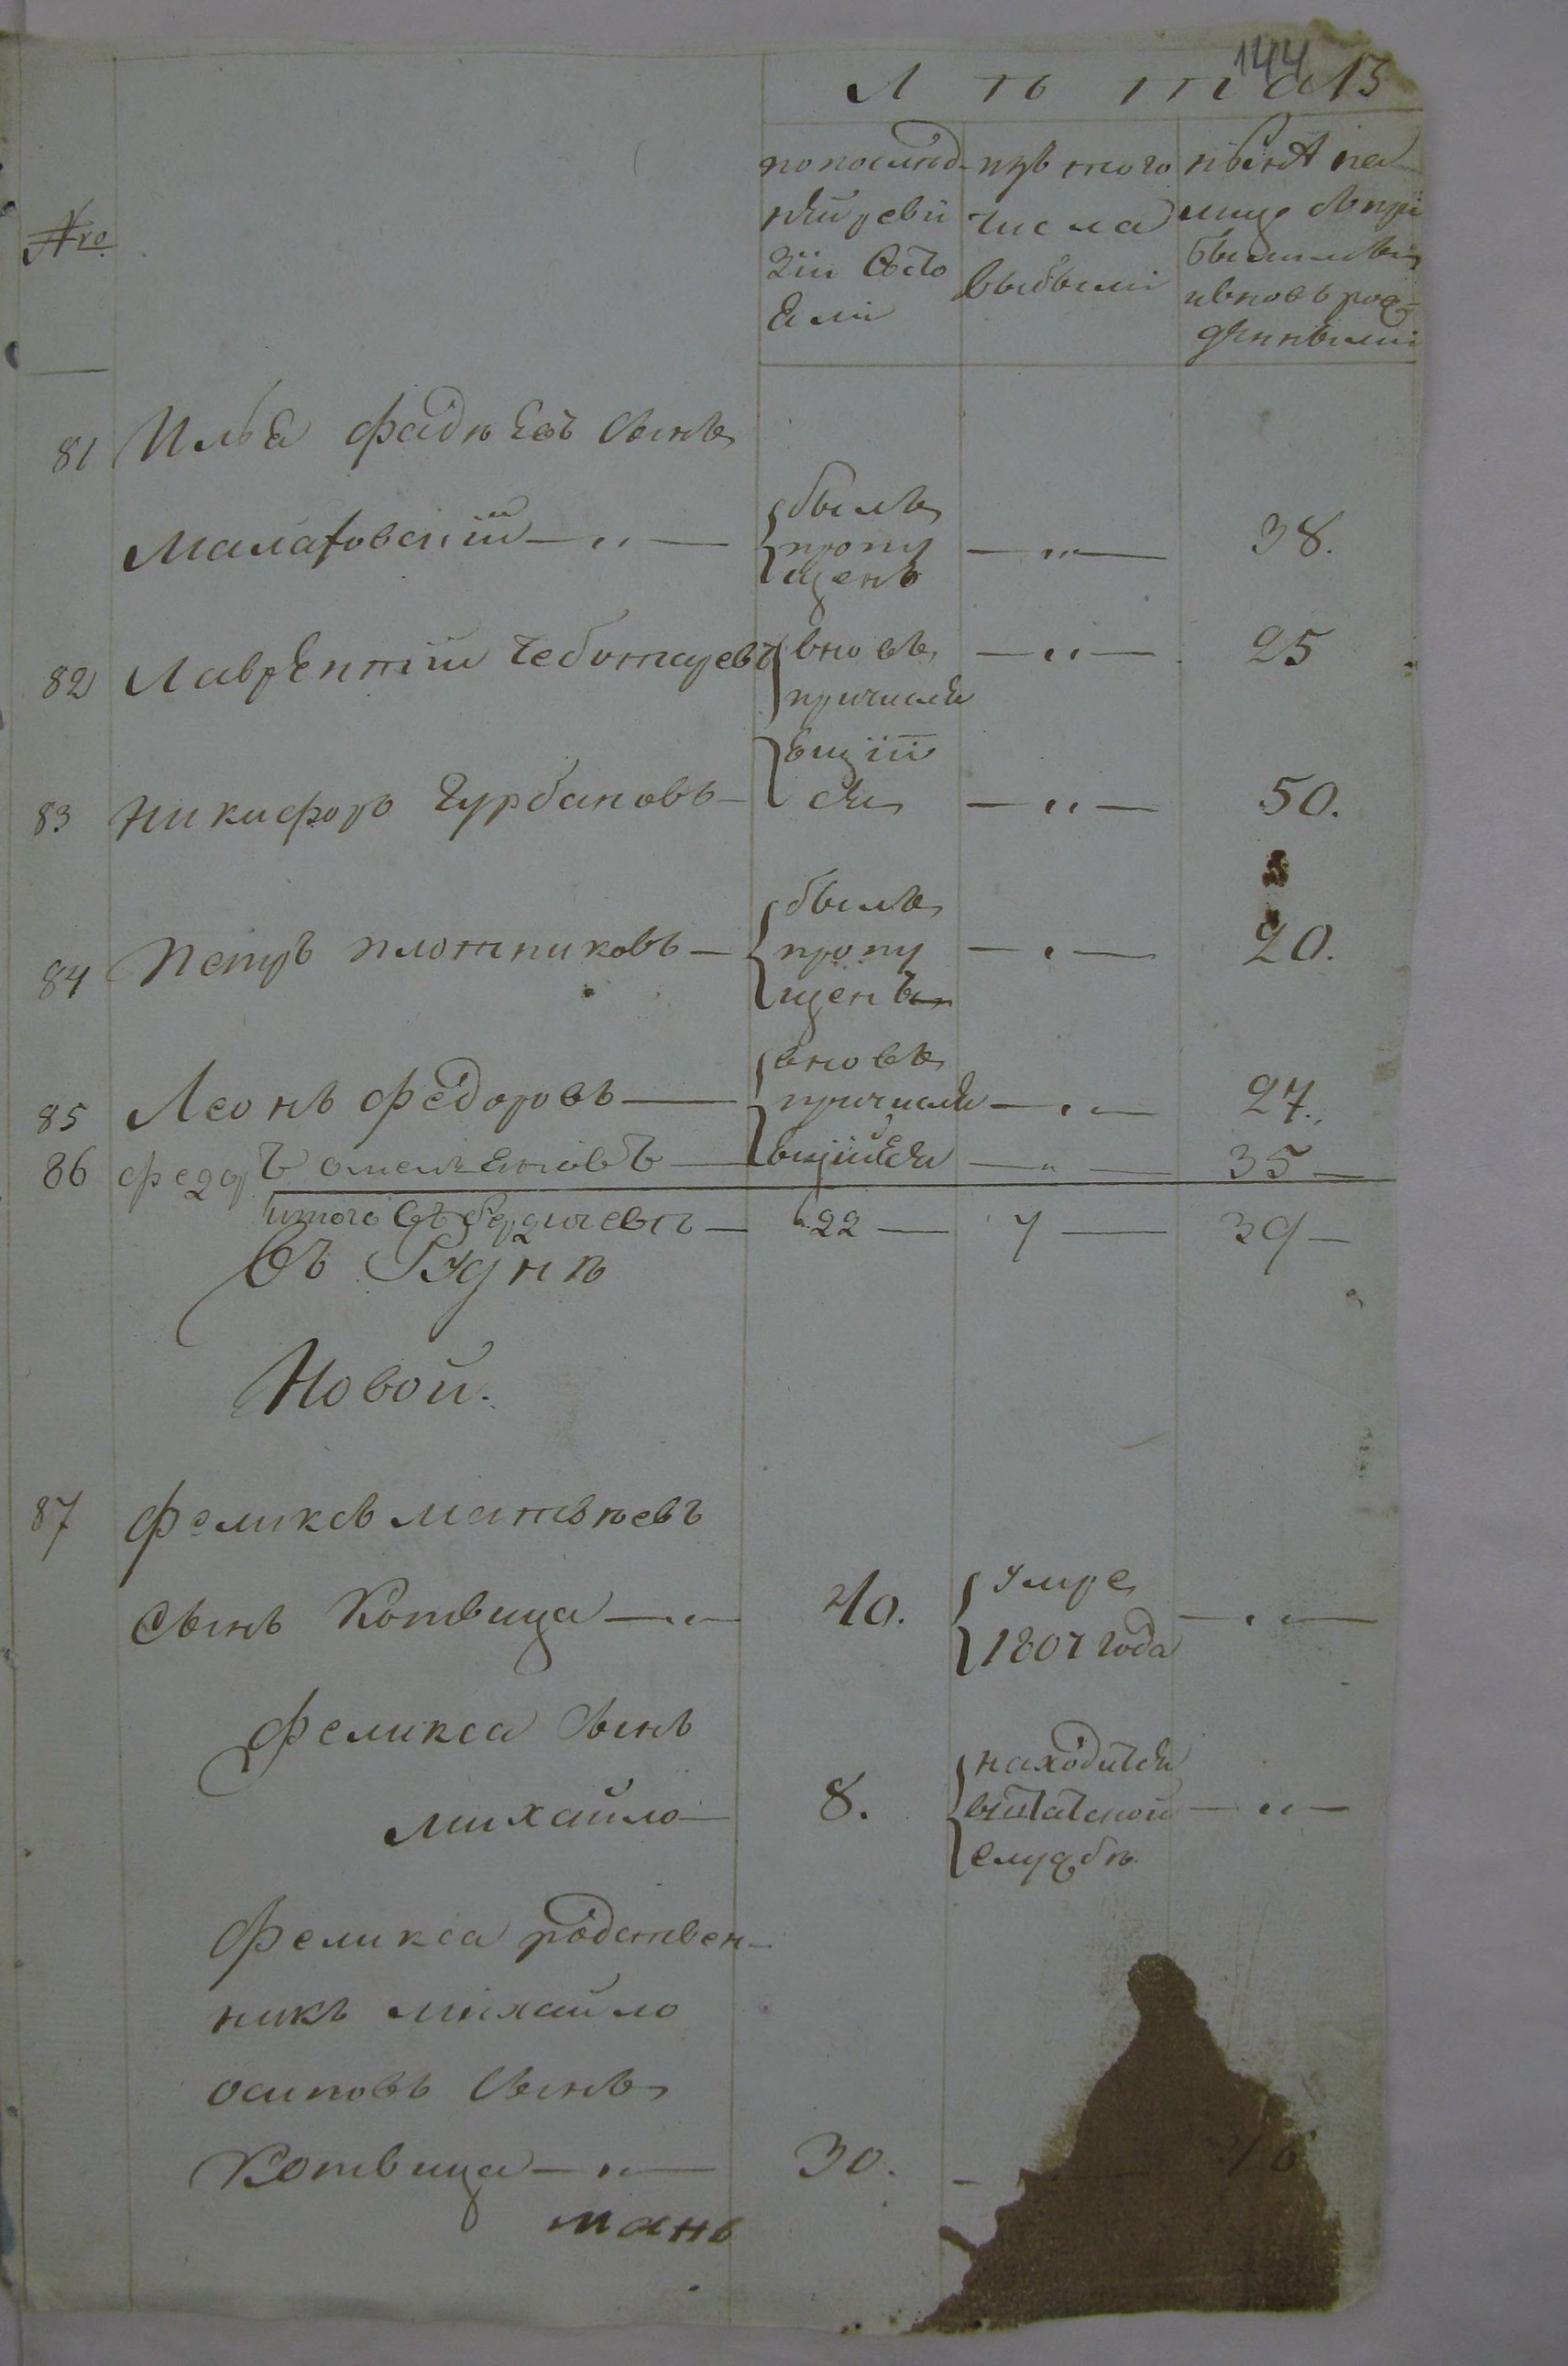 144
Л ѣ т а 13
Nro.
по послѣд-
ней реви
зіи состо
ели
изъ того
числа
выбыли
ныне на
лицо съ при
былыми
и вновь рож-
денными
81 Илья Фадѣевъ сынъ
Малаховскій — " — былъ пропу щенъ — " — 38.
82 Лаврентій Чеботаревъ вновь — " — 25
причисли
вшійся
83 Никифоръ Курбановъ — — " — 50.
84 Петръ Плотниковъ — былъ пропу щенъ — " — 20.
85 Леонъ Федоровъ — вновь причисли — " — 27.
86 Федоръ Омельяновъ — вшійся — " — 35 —
итого въ Бердичевѣ — 22 — 7 — 39 —
Въ Рудне
Новой.
87 Феликсъ Матвѣевъ
сынъ Котвица — " — 40. умре 1807 года — " —
Феликса сынъ
Михайло — 8. находится въ штатской службѣ — " —
Феликса родствен-
никъ Михайло
Осиповъ сынъ
Котвица — " — 30. —
манъ